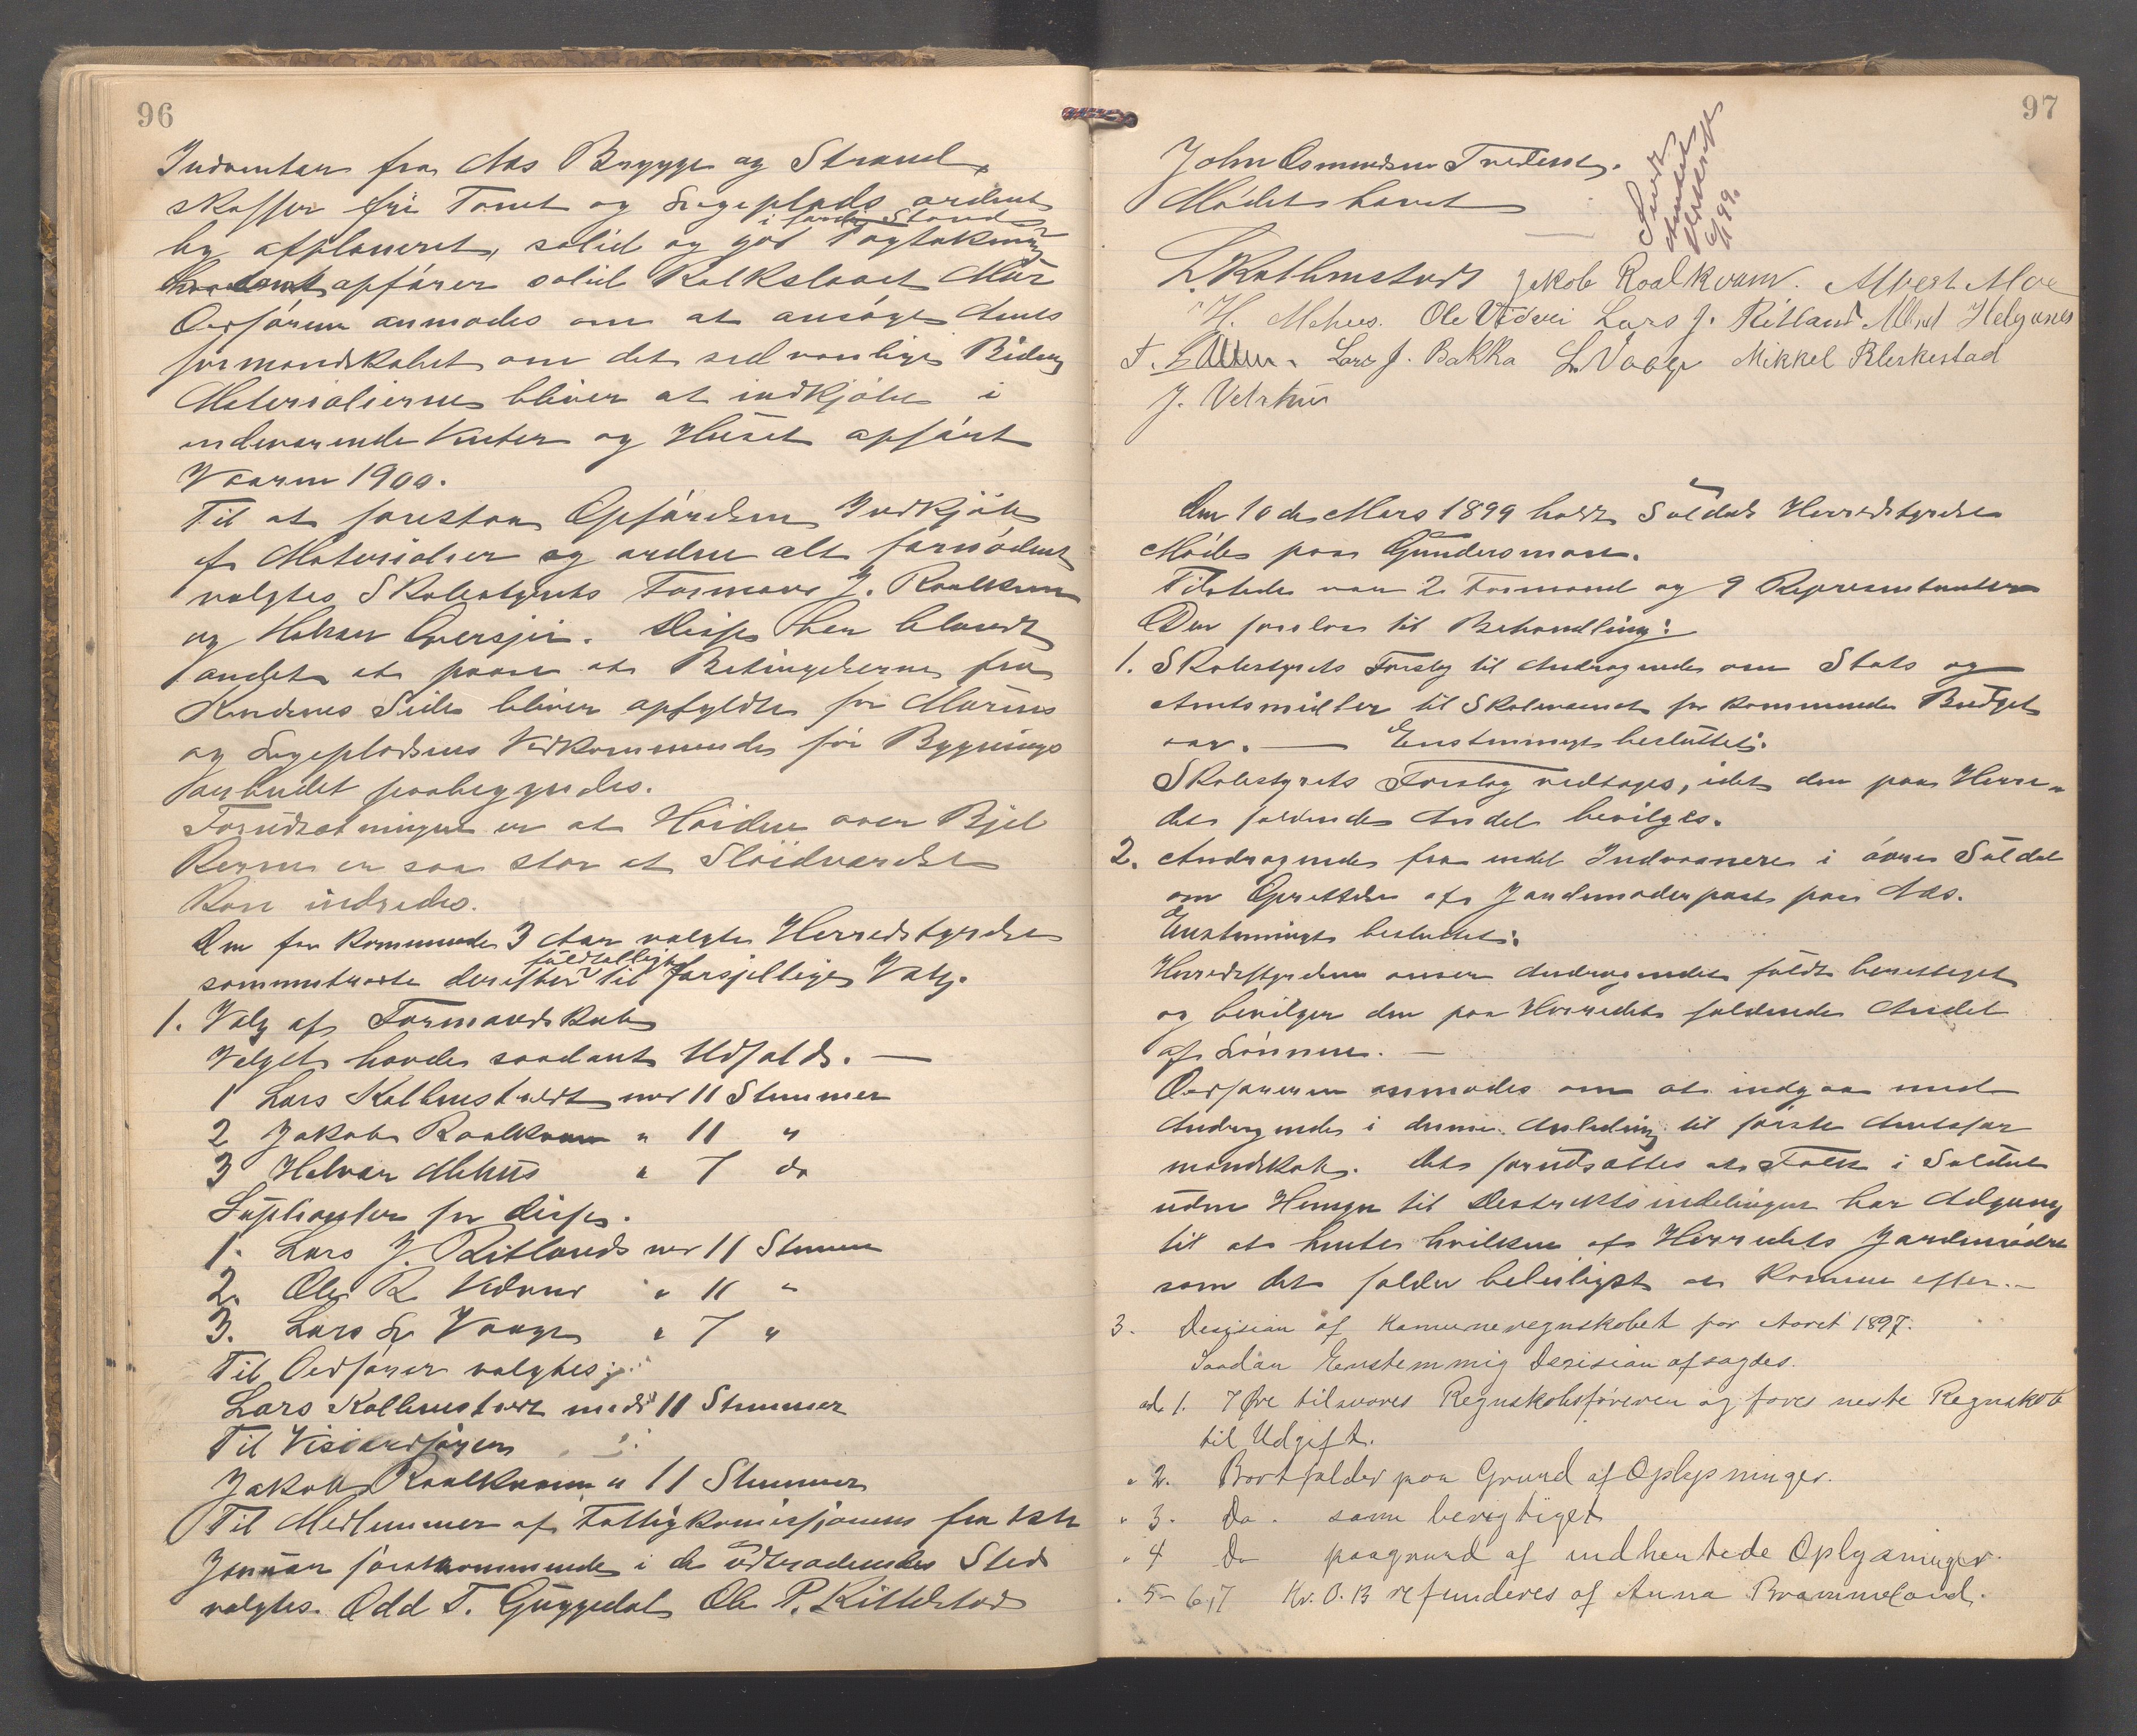 96
fra Aas Brygge og Strand,
skaffer fri Tomt og Legeplads ordent
i færdig Stand
lig afplaneret, solid og god Tagtækning
opfører solid Kalkslaaet Mur
Ordføren anmodes om at ansøge Amts
formandskabet om det sedvanlige Bidrag
Materialierne bliver at indkjøbe i
indeværende Vinter og Huset opført
Vaaren 1900.
Til at forestaa Opførelsen Indkjøb
af Materialier og ordne alt fornødent
valgtes Skolestyrets Formand J. Roalkvam
og Halvar Oversjøi. Disse har blandt
andet at paase at Betingelserne fra
Kredsens Side bliver opfyldte for Murens
og Legepladsens Vedkommende før Bygnings
arbeidet paabegyndes.
Forudsætningen er at Høiden over Bjel
kerne er saa stor at Sløidværelse
kan indredes.
Den for kommende 3 Aar valgte Herredstyrelse
fuldtallig
sammentraadte derefter til forsjellige Valg.
1. Valg af Formandskab
Valget havde saadant Udfald. —
1 Lars Kolbenstvedt med 11 Stemmer
2 Jakob Roalkvam " 11 "
3 Halvar Mehus " 7 do
Suplianter for disse.
1. Lars J. Ritland med 11 Stemmer
2. Ole R. " 11 "
3. Lars L. Vaage " 7 "
Til Ordfører valgtes:
Lars Kolbenstvedt med 11 Stemmer
Til Viseordfører
Jakob Roalkvam " 11 Stemmer
Til Medlemmer af Fattigkomissjonen fra 1ste
Januar førstkommende i de udtrædendes Sted
valgtes. Odd T. Guggedal Ole P. Kittelstad
97
John Osmundsen Tveitene.
Mødet hævet
Sendt
Amtet
Udskrift
99.
L. Kolbenstvedt Jakob Roalkvam. Albert Moe
H. Mehus. Ole Vidvei Lars J. Ritland Albert Helganes
Lars J. Bakka L. Vaage Mikkel Bleskestad
J. Vetrhus
Den 10de Mars 1899 holdt Suldals Herredstyrelse
Møde paa Gundersmoen.
Tilstede var 2 Formænd og 9 Representanter
Der forelaa til Behandling:
1. Skolestyrets Forslag til Andragende om Stats og
Amtsmidler til Skolevæsenet for kommende Budget
aar. — Enstemmigt besluttet:
Skolestyrets Forslag vedtages, idet den paa Herre-
det faldende Andel bevilges.
2. Andragende fra endel Indvaanere i øvre Suldal
om Oprettelse af Jordemoderpost paa Aas.
Enstemmigt besluttet:
Herredstyrelsen anser Andragendet fuldt berettiget
og bevilger den paa Herredet faldende Andel
af Lønnen. —
Ordføreren anmodes om at indgaa med
Andragende i denne Anledning til første Amtsfor
mandskab. Det forudsættes at Folk i Suldal
uden Hensyn til Destriktsindelingen har Adgang
til at hente hvilken af Herredets Jordemødre
som det falder beleiligst at komme efter. —
3. Desisian af Kamuneregnskabet for Aaret 1897.
Saadan Eenstemmig Desisian afsagdes.
ad 1. 7 Øre tilsvares Regnskabsføreren og føres neste Regnskab
til Udgift.
" 2. Bortfalder paa Grund af Oplysninger.
" 3. Do. som berigtiget
" 4 Do paagrund af indhentede Oplysninger.
" 5- 6,7 Kr. 0.13 refunderes af Anna Brommeland.